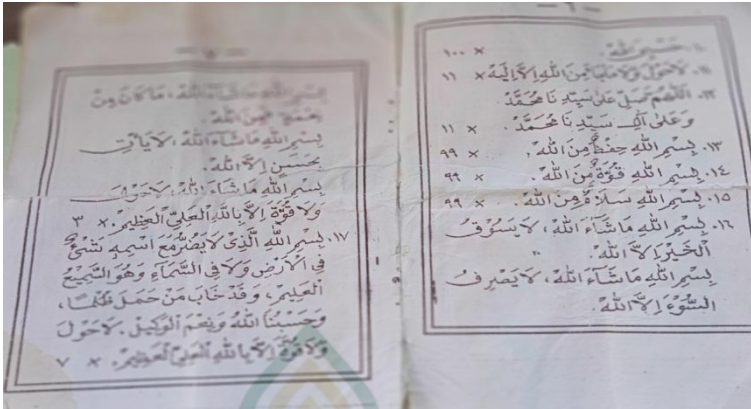 ١٠. حَسْبِيَ اللهُ. × ١٠٠
١١. لَاحَوْلَ وَلَا مَلْجَأَ مِنَ اللهِ اِلَّا اِلَيْهِ × ١١
١٢. اَللّٰهُمَّ صَلِّ عَلىٰ سَيِّدِنَا مُحَمَّدٍ
وَعَلىٰ اٰلِ سَيِّدِنَا مُحَمَّدٍ. × ١١
١٣. بِسْمِ اللهِ حِفْظٌ مِنَ اللهِ. × ٩٩
١٤. بِسْمِ اللهِ قُوَّةٌ مِنَ اللهِ. × ٩٩
١٥. بِسْمِ اللهِ سَلَامٌ مِنَ اللهِ. × ٩٩
١٦. بِسْمِ اللهِ مَاشَآءَ اللهُ، لَايَسُوْقُ
الْخَيْرَ اِلَّا اللهُ.
بِسْمِ اللهِ مَاشَآءَ اللهُ، لَايَصْرِفُ
السُّوْءَ اِلَّا اللهُ.
بِسْمِ اللهِ مَاشَآءَ اللهُ، مَاكَانَ مِنْ
نِعْمَةٍ فَمِنَ اللهِ.
بِسْمِ اللهِ مَاشَآءَ اللهُ، لَايَأْتِى
بِحَسَنٍ اِلَّا اللهُ.
بِسْمِ اللهِ مَاشَآءَ اللهُ، لَاحَوْلَ
وَلَا قُوَّةَ اِلَّا بِاللهِ الْعَلِيِّ الْعَظِيْمِ. × ٣
١٧. بِسْمِ اللهِ الَّذِى لَايَضُرُّ مَعَ اسْمِهِ شَىْءٌ
فِى الْاَرْضِ وَلَا فِى السَّمَآءِ وَهُوَ السَّمِيْعُ
الْعَلِيْمُ، وَقَدْ خَابَ مَنْ حَمَلَ ظُلْمًا،
وَحَسْبُنَا اللهُ وَنِعْمَ الْوَكِيْلُ. لَاحَوْلَ
وَلَا قُوَّةَ اِلَّا بِاللهِ الْعَلِيِّ الْعَظِيْمِ. × ٧